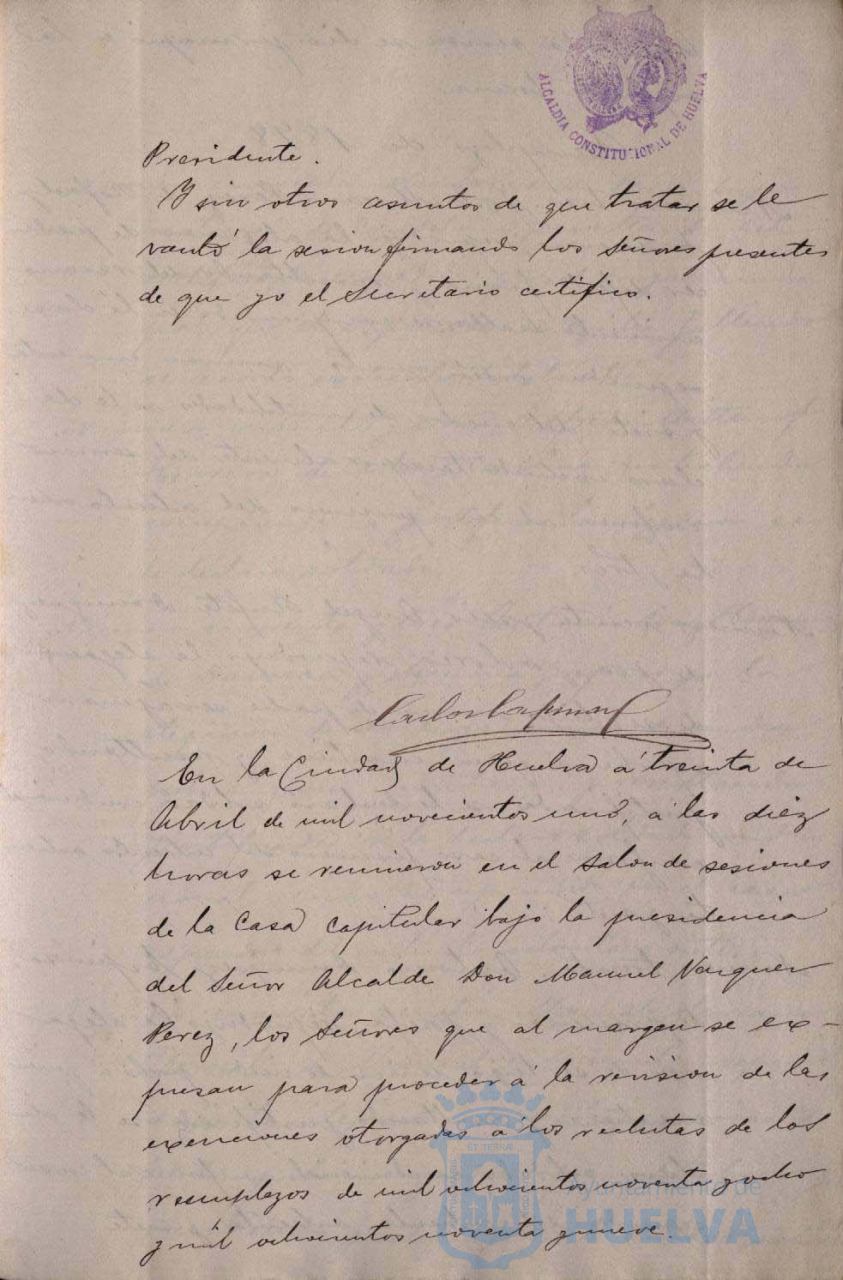 ALCALDIA CONSTITUCIONAL DE HUELVA
Presidente.
Y sin otros asuntos de que tratar se le
vantó la sesion firmando los Señores presentes
de que yo el Secretario certifico.
En la Ciudad de Huelva á treinta de
Abril de mil novecientos uno, á las diéz
horas se reunieron en el salon de sesiones
de la Casa capitular bajo la presidencia
del Señor Alcalde Don Manuel Vazquez
Perez, los Señores que al margen se ex-
presan para proceder á la revision de las
exenciones otorgadas á los reclutas de los
reemplazos de mil ochocientos noventa y ocho
y mil ochocientos noventa y nueve.
Ayuntamiento de
HUELVA